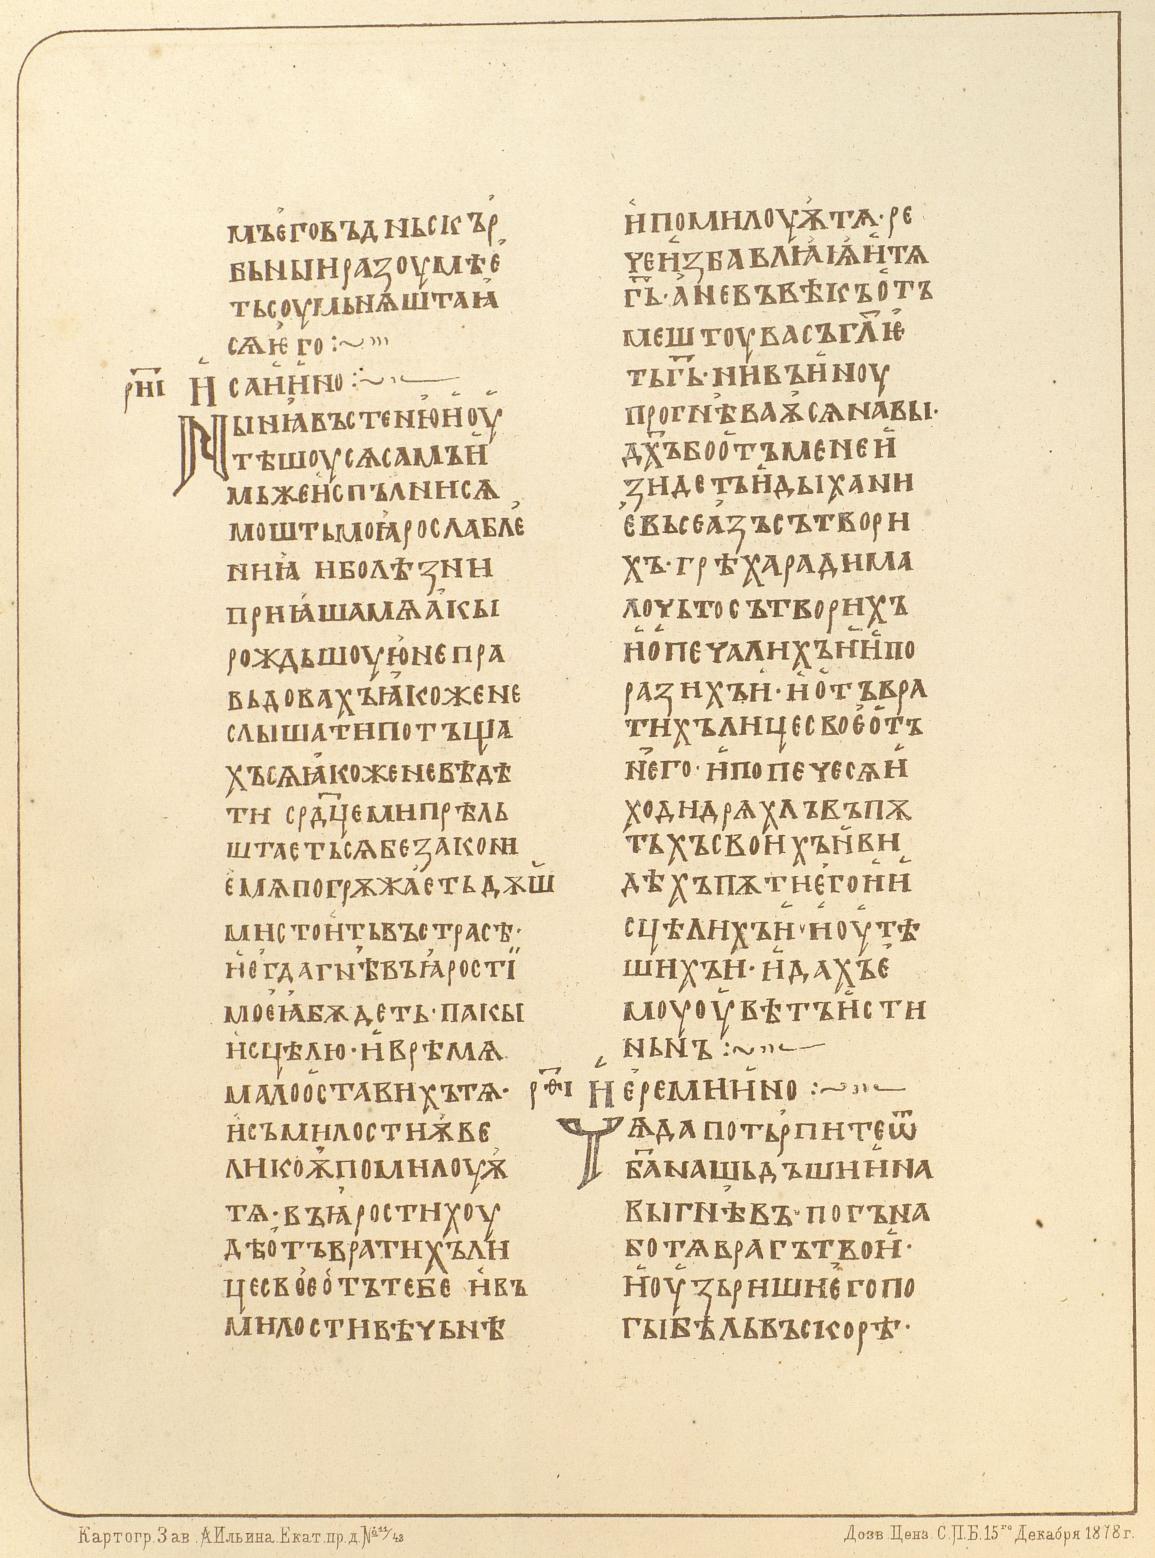 мъегов ъдньскър
бьныꙵнразоумѣе
тьсоумьнѧштаꙗ
сѧѥго :~
рн҃і Исаиино :~
Ныниꙗвъстенюиоу
тѣшоусѧсамъи
мьжеиспълнисѧ
моштьмоꙗрослабле
ниꙗ иболѣзни
приꙗшамѧакы
рождьшоуюнепра
вьдовахъꙗкожене
слышатипотъща
хъсѧꙗкоженевѣдѣ
ти срдцемипрѣль
штаетьсѧбезакони
емѧпогрѫжаетьдѫш
мистоитьвъстрасѣ·
иегдагнѣвъꙗрості
моеꙗбѫдеть·пакы
исцѣлю·иврѣмѧ
малооставихътѧ·
исъмилостиѫве
ликоѭпомилоуѭ
тѧ·въꙗростихоу
дѣотъвратихъли
цесвоеотътебе ивъ
милостивѣчьнѣ
ипомилоуѭтѧ·ре
чеизбавлꙗꙗитѧ
г҃ь·аневъвѣкъотъ
мештоувасъгл҃ѥ
тьг҃ь·нивъиноу
прогнѣваѭсѧнавы·
дх҃ъбоотъменеи
зидетьидыхани
евьсеазъсътвори
хъ·грѣхарадима
лочьтосътворихъ
иопечалихъииипо
разихъи·иотъвра
тихълицесвоеотъ
него·ипопечесѧи
ходидрѧхлъвъпѫ
тьхъсвоихъиви
дѣхъпѫтиегоии
сцѣлихъи·иоутѣ
шихъи·идахъе
моуоувѣтъисти
ньнъ :~
рѳ҃і Иеремиино :~
Чѧдапотьрпитеѿ
б҃анашьдъшиина
выгнѣвъ·погъна
ботѧврагътвои·
иоузьришиегопо
гыбѣльвъскорѣ·
Картогр. Зав. А Ильина. Екат. пр. д. №
Дозв. Ценз. С.П.Б. 15го Декабря 1878 г.